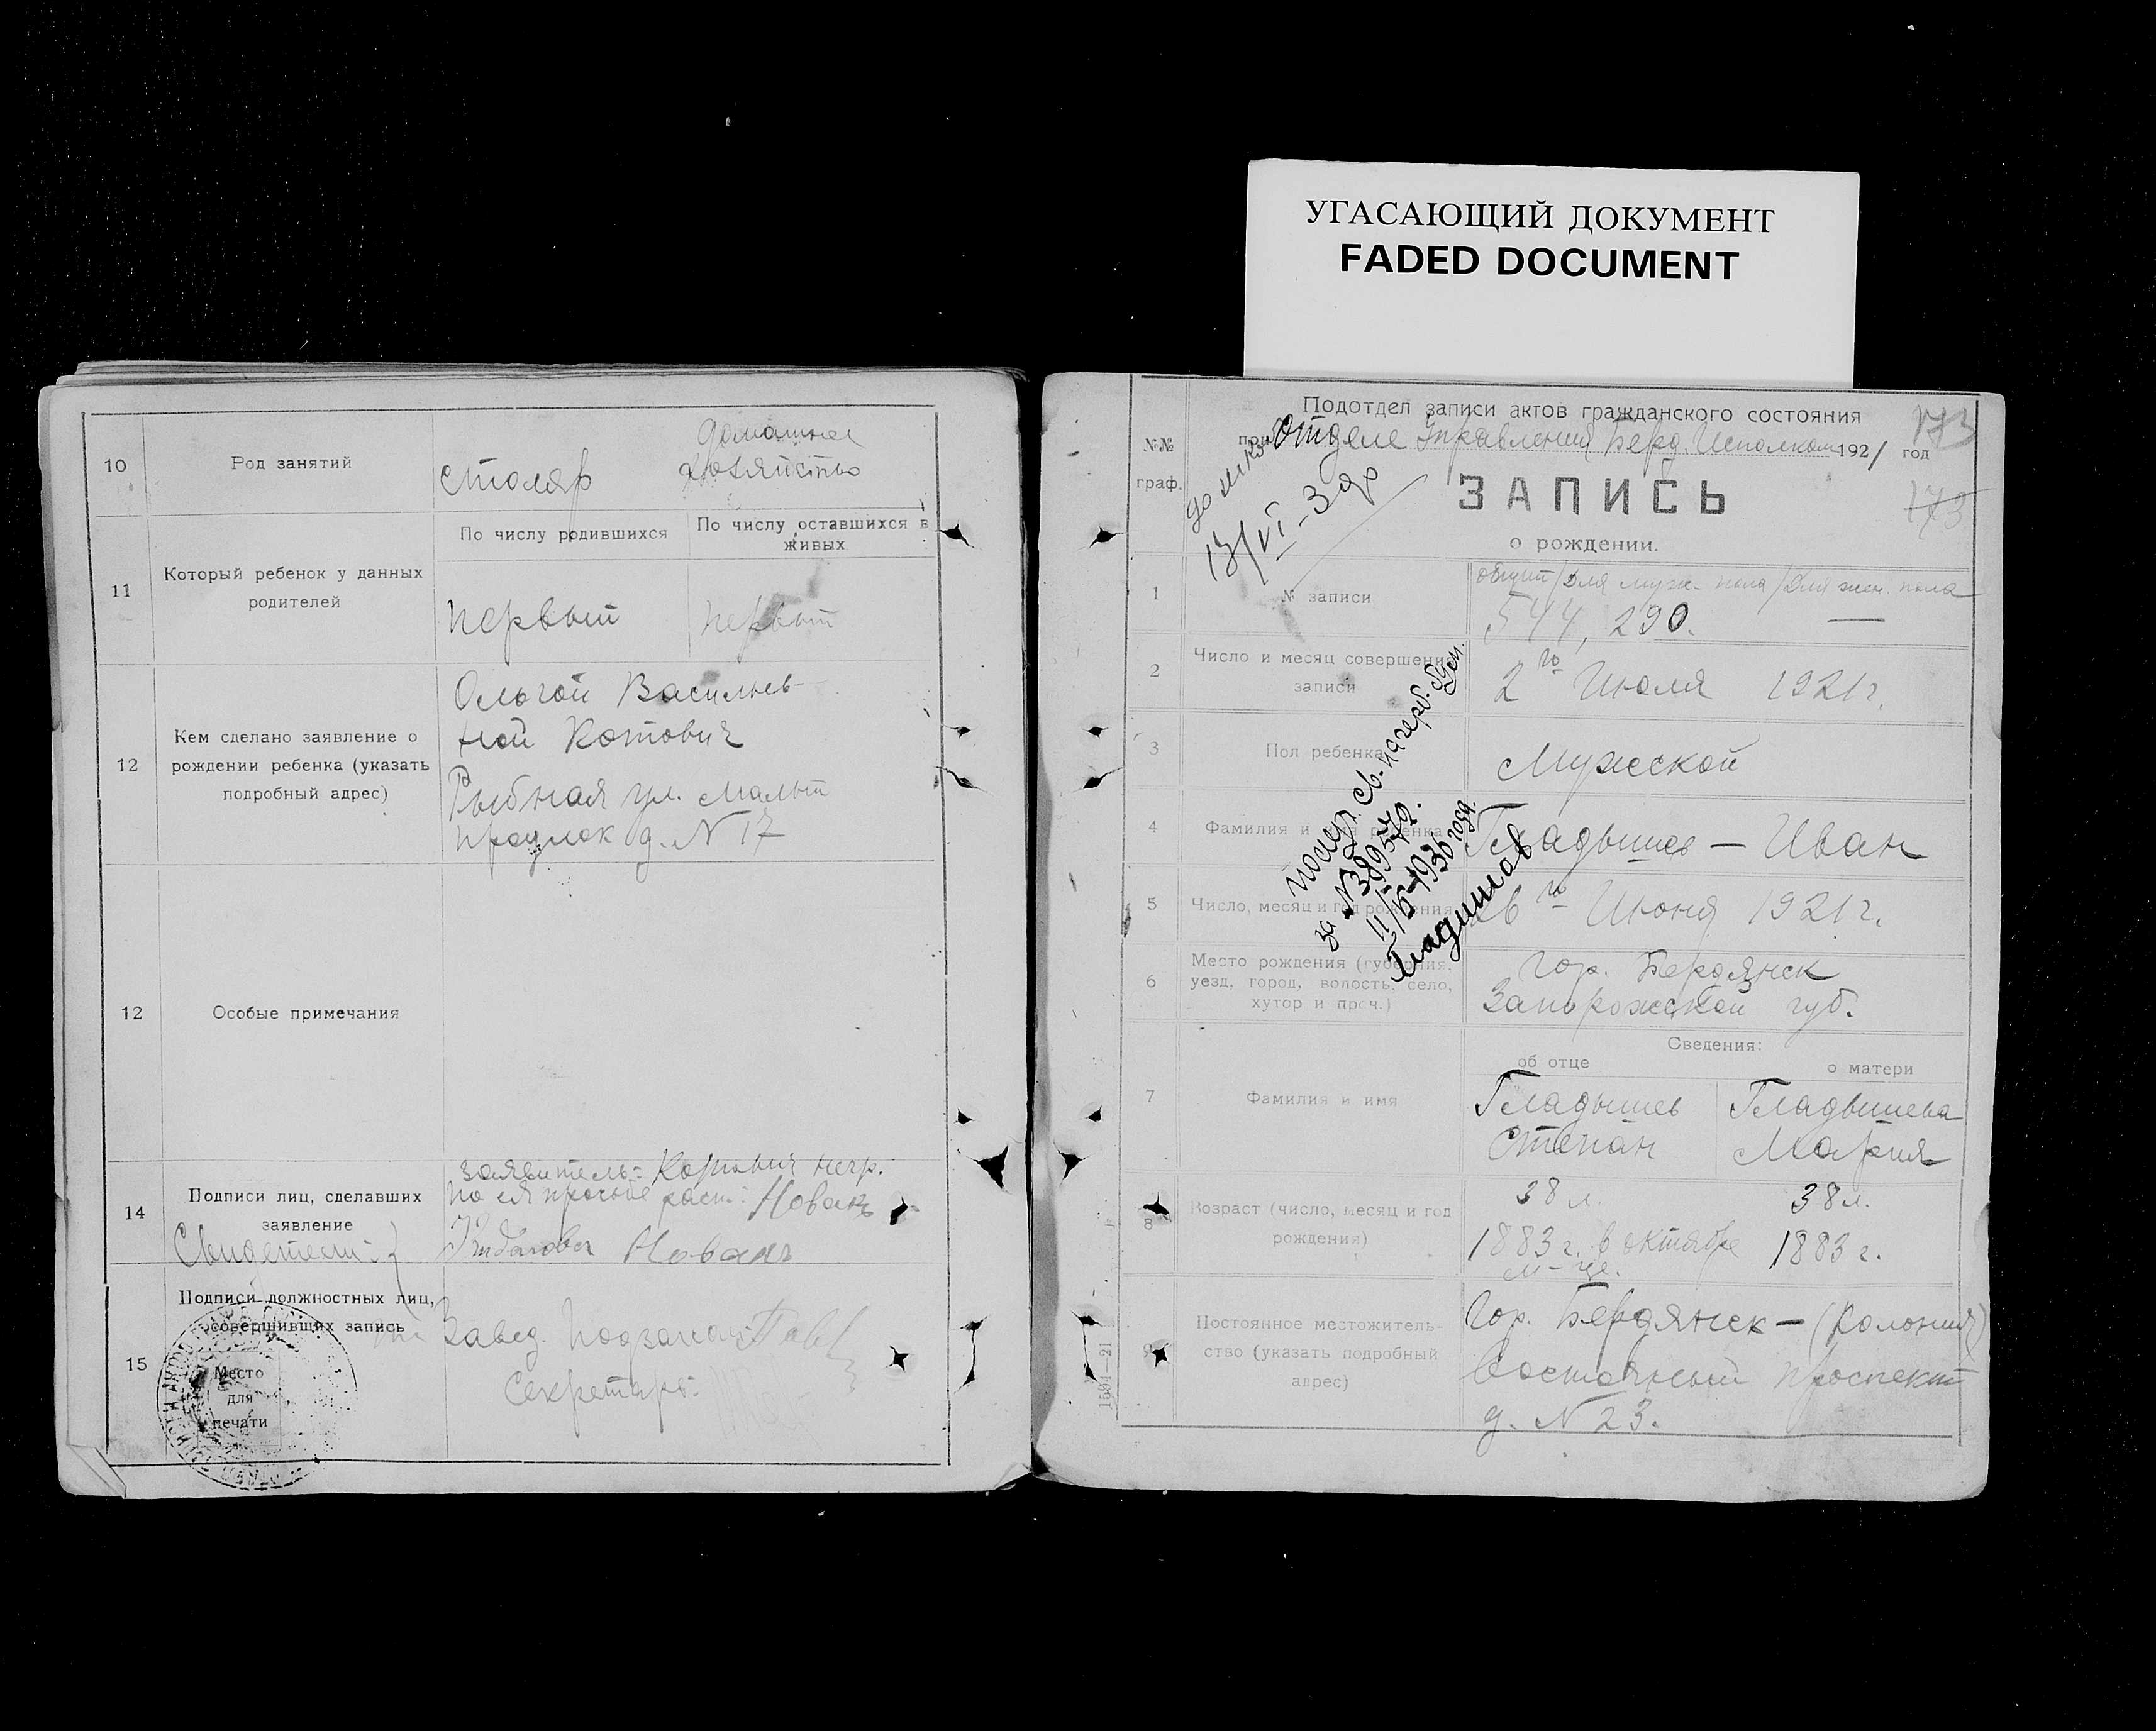 УГАСАЮЩИЙ ДОКУМЕНТ
FADED DOCUMENT
10
Род занятий
столяр
домашнее
хозяйство
11
Который ребенок у данных
родителей
По числу родившихся
По числу оставшихся в
живых
первый
первый
12
Кем сделано заявление о
рождении ребенка (указать
подробный адрес)
Ольгой Васильев-
ной Котович
Рыбная ул. Малый
проулок д. N 17
12
Особые примечания
14
Подписи лиц, сделавших
заявление
Свидетели:
заявитель: негр.
по ея просьбе расп: Новакъ
Новакъ
15
Подписи должностных лиц,
совершивших запись
Место
для
печати
Завед.
Секретарь:
№№
граф.
Подотдел записи актов гражданского состояния
при Отделе Управления Берд. Исполком 1921 год
173
173
ЗАПИСЬ
о рождении.
13/VI-3
1
№ записи
общий/для муж. пола/для жен. пола
544, 290. —
2
Число и месяц совершения
записи
2го Июля 1921 г.
3
Пол ребенка
Мужской
4
Фамилия и имя ребенка
Гладышев — Иван
5
Число, месяц и год рождения
26го Июня 1921 г.
6
Место рождения (губерния,
уезд, город, волость, село,
хутор и проч.)
гор. Бердянск
Запорожской губ.
за N 399570.
11/VI-1936 года.
7
Фамилия и имя
Сведения:
об отце
о матери
Гладышев
Степан
Гладышева
Мария
8
Возраст (число, месяц и год
рождения)
38 л.
1883 г. в октябре
м-це.
38 л.
1883 г.
9
Постоянное местожитель-
ство (указать подробный
адрес)
Гор. Бердянск — (колония)
Восточный проспект
д. N 23.